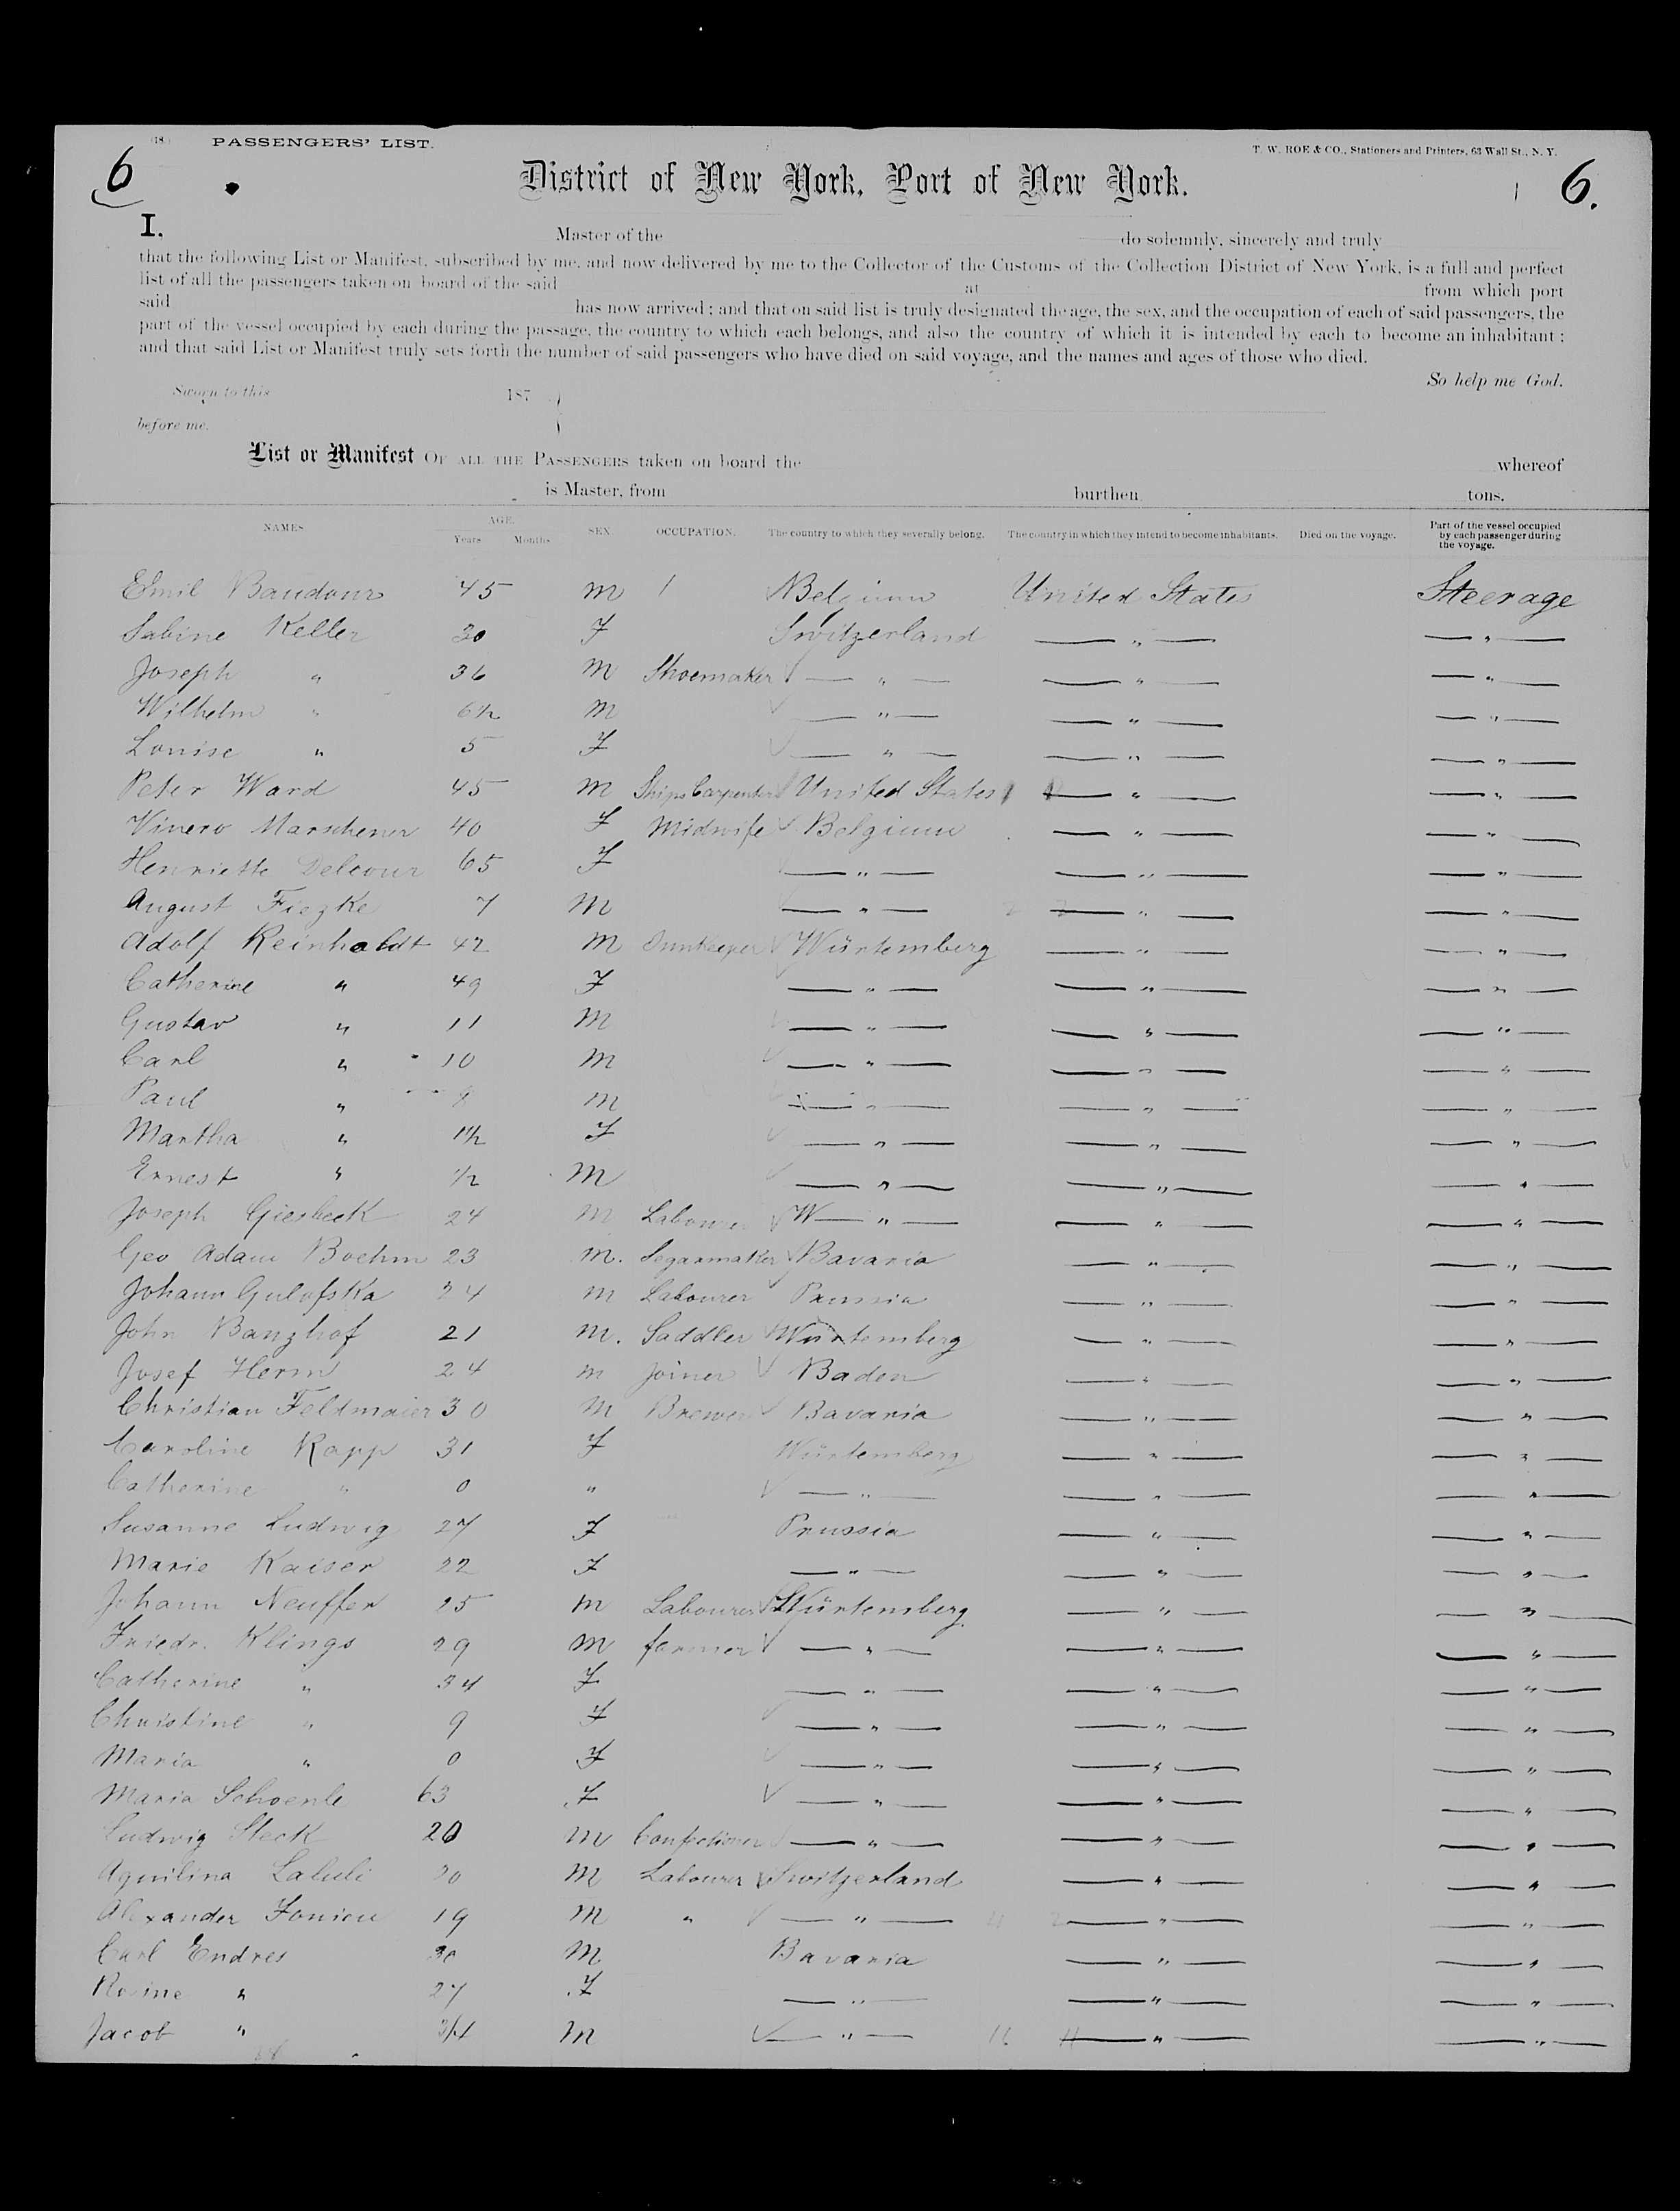 (18) PASSENGERS' LIST. T. W. ROE & CO., Stationers and Printers, 63 Wall St., N. Y.
6 District of New York, Port of New York. 6.
I. Master of the do solemnly, sincerely and truly
that the following List or Manifest, subscribed by me, and now delivered by me to the Collector of the Customs of the Collection District of New York, is a full and perfect
list of all the passengers taken on board of the said at from which port
said has now arrived; and that on said list is truly designated the age, the sex, and the occupation of each of said passengers, the
part of the vessel occupied by each during the passage, the country to which each belongs, and also the country of which it is intended by each to become an inhabitant;
and that said List or Manifest truly sets forth the number of said passengers who have died on said voyage, and the names and ages of those who died.
So help me God.
Sworn to this 187
before me.
List or Manifest OF ALL THE PASSENGERS taken on board the whereof
is Master, from burthen tons.
NAMES AGE. Years Months SEX. OCCUPATION. The country to which they severally belong. The country in which they intend to become inhabitants. Died on the voyage. Part of the vessel occupied by each passenger during the voyage.
Emil Baudour 45 m Belgium United States Steerage
Sabine Keller 30 F Switzerland — " — — " —
Joseph " 36 m Shoemaker — " — — " — — " —
Wilhelm " 6½ m — " — — " — — " —
Louise " 5 F — " — — " — — " —
Peter Ward 45 m Ships Carpenter United States — " — — " —
Marschener 40 F Midwife Belgium — " — — " —
Henriette Delcour 65 F — " — — " — — " —
August Fiezke 7 m — " — — " — — " —
Adolf Reinholdt 42 m Innkeeper Würtemberg — " — — " —
Catherine " 49 F — " — — " — — " —
Gustav " 11 m — " — — " — — " —
Carl " 10 m — " — — " — — " —
Paul " 8 m — " — — " — — " —
Martha " 1½ F — " — — " — — " —
Ernest " ½ m — " — — " — — " —
Joseph Giesbeck 24 m Labourer W — " — — " — — " —
Geo Adam Boehm 23 m. Segarmaker Bavaria — " — — " —
Johann Gulofska 24 m Labourer Prussia — " — — " —
John Banzhof 21 m. Saddler Würtemberg — " — — " —
Josef Herm 24 m Joiner Baden — " — — " —
Christian Feldmaier 30 m Brewer Bavaria — " — — " —
Caroline Rapp 31 F Würtemberg — " — — " —
Catherine " 0 " — " — — " — — " —
Susanne Ludwig 27 F Prussia — " — — " —
Marie Kaiser 22 F — " — — " — — " —
Johann Neuffer 25 m Labourer Würtemberg. — " — — " —
Friedr. Klings 29 m farmer — " — — " — — " —
Catherine " 34 F — " — — " — — " —
Christine " 9 F — " — — " — — " —
Maria " 0 F — " — — " — — " —
Maria Schoenle 63 F — " — — " — — " —
Ludwig Steck 20 m Confectioner — " — — " — — " —
Aquilina Laluli 20 m Labourer Switzerland — " — — " —
Alexander 19 m " — " — — " — — " —
Carl Endres 30 m Bavaria — " — — " —
Rosine " 27 F — " — — " — — " —
Jacob " 3/4 m — " — — " — — " —